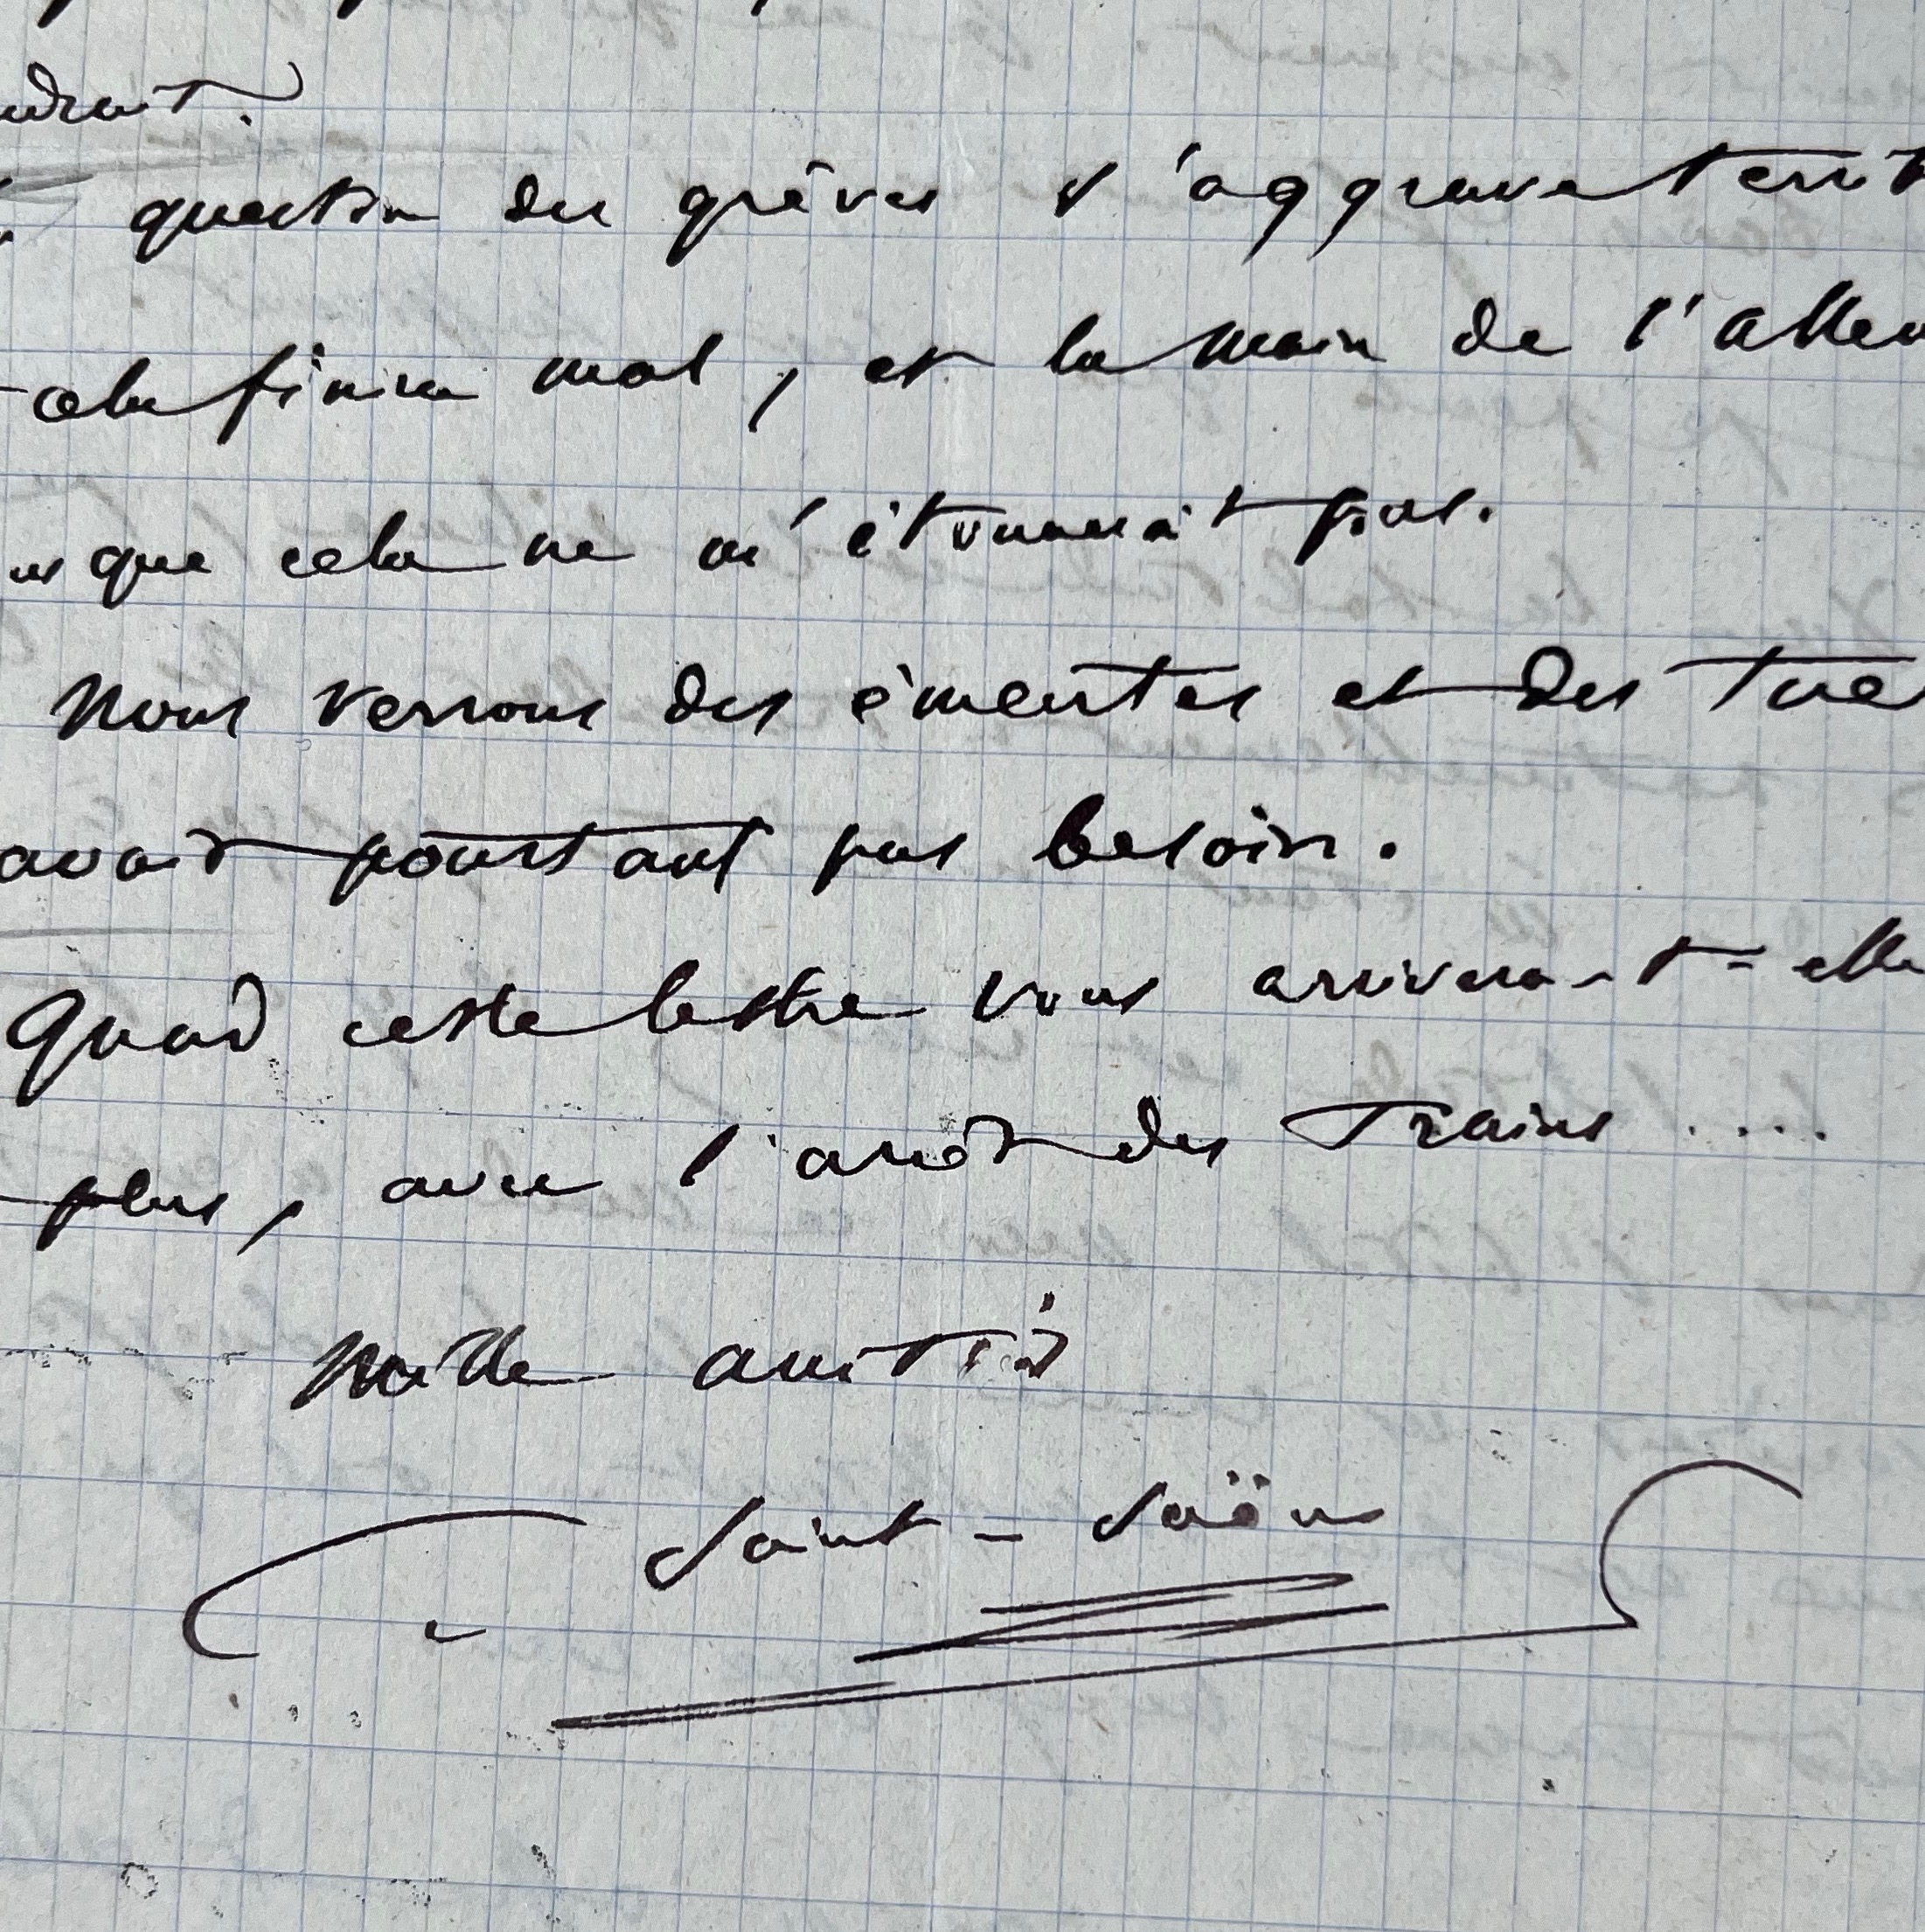 question des grèves s'aggrave terrib
cela finira mal, et la main de l'Allem
que cela ne m'étonnerait pas.
Nous verrons des émeutes et des tue
avait pourtant pas besoin.
Quand cette lettre vous arrivera-t-elle
plus, avec l'arrêt des trains ....
Mille amitiés
C. Saint-Saëns